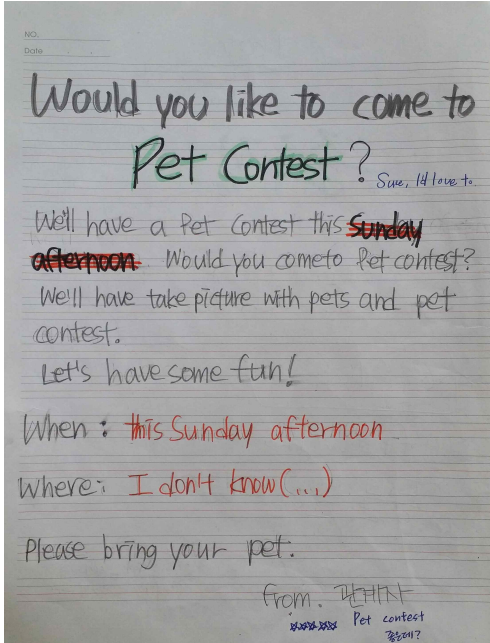 NO.
Date
Would you like to come to
Pet Contest?
Sure, I'd love to.
We'll have a Pet Contest this Sunday
afternoon. Would you cometo Pet contest?
We'll have take picture with pets and pet
contest.
Let's have some fun!
When : this Sunday afternoon
Where: I don't know(...)
Please bring your pet.
from. 관계자
☆☆☆☆☆ Pet contest
좋은데?